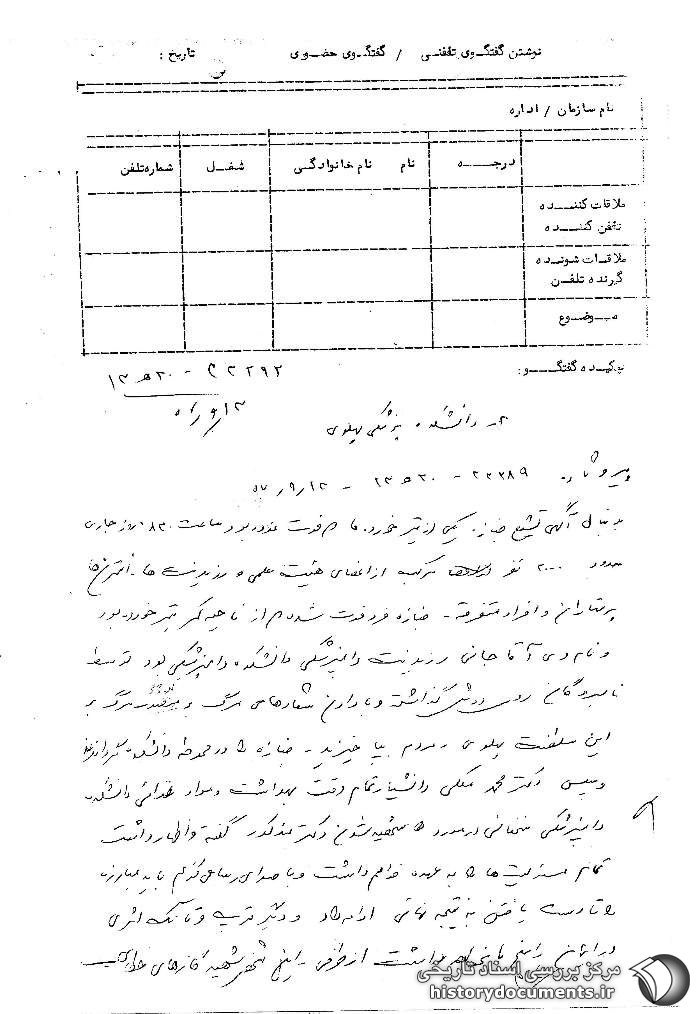 نوشتن گفتگـوی تلفنـی / گفتگـوی حضـوری تاریخ :
نام سازمان / اداره
درجـــه نام نام خانوادگـی شغـل شماره تلفن
ملاقات کننـــده
تلفن کننـــده
ملاقـات شونـده
گیرنده تلفـن
مـوضوع
چکیـده گفتگـــو :
۲۲۲۹۲ - ۲۰ ه ۱۲
۱۲/۹/
۲- دانشکده پزشکی پهلوی
پیرو ۲۲۲۸۹ - ۲۰ ه ۱۲ - ۱۲/۹/
بدنبال آگهی تشییع جنازه یکی از تیر خورده‌ها فوت نموده بود ساعت ۸۳۰ روز جاری
حدود ۲۰۰۰ نفر مرکب از اعضای هیئت علمی و رزیدنت ها - انترن‌ها
پرستاران و افراد متفرقه - جنازه فرد فوت شده از ناحیه کمر تیر خورده بود
و نام وی آقا جانی رزیدنت دامپزشکی دانشکده دامپزشکی بود توسط
نامبردگان روی دوش گذاشته و با دادن شعارهای مرگ بر مرگ بر
این سلطنت پهلوی - مردم بپا خیزید - جنازه را در محوطه دانشکده
و سپس دکتر محمد ملکی دانشیار تمام وقت بهداشت و مواد غذائی دانشکده
دامپزشکی سخنانی در مورد شهید شدن دکتر مذکور گفته و اظهار داشت
تمام مسئولیت ها را به عهده خواهم داشت و با صدای رسا می گویم باید مبارزه
را تا دست یافتن به نتیجه نهائی ادامه داد و دیگر
در ایران از طرفی
مرکز بررسی اسناد تاریخی
historydocuments.ir